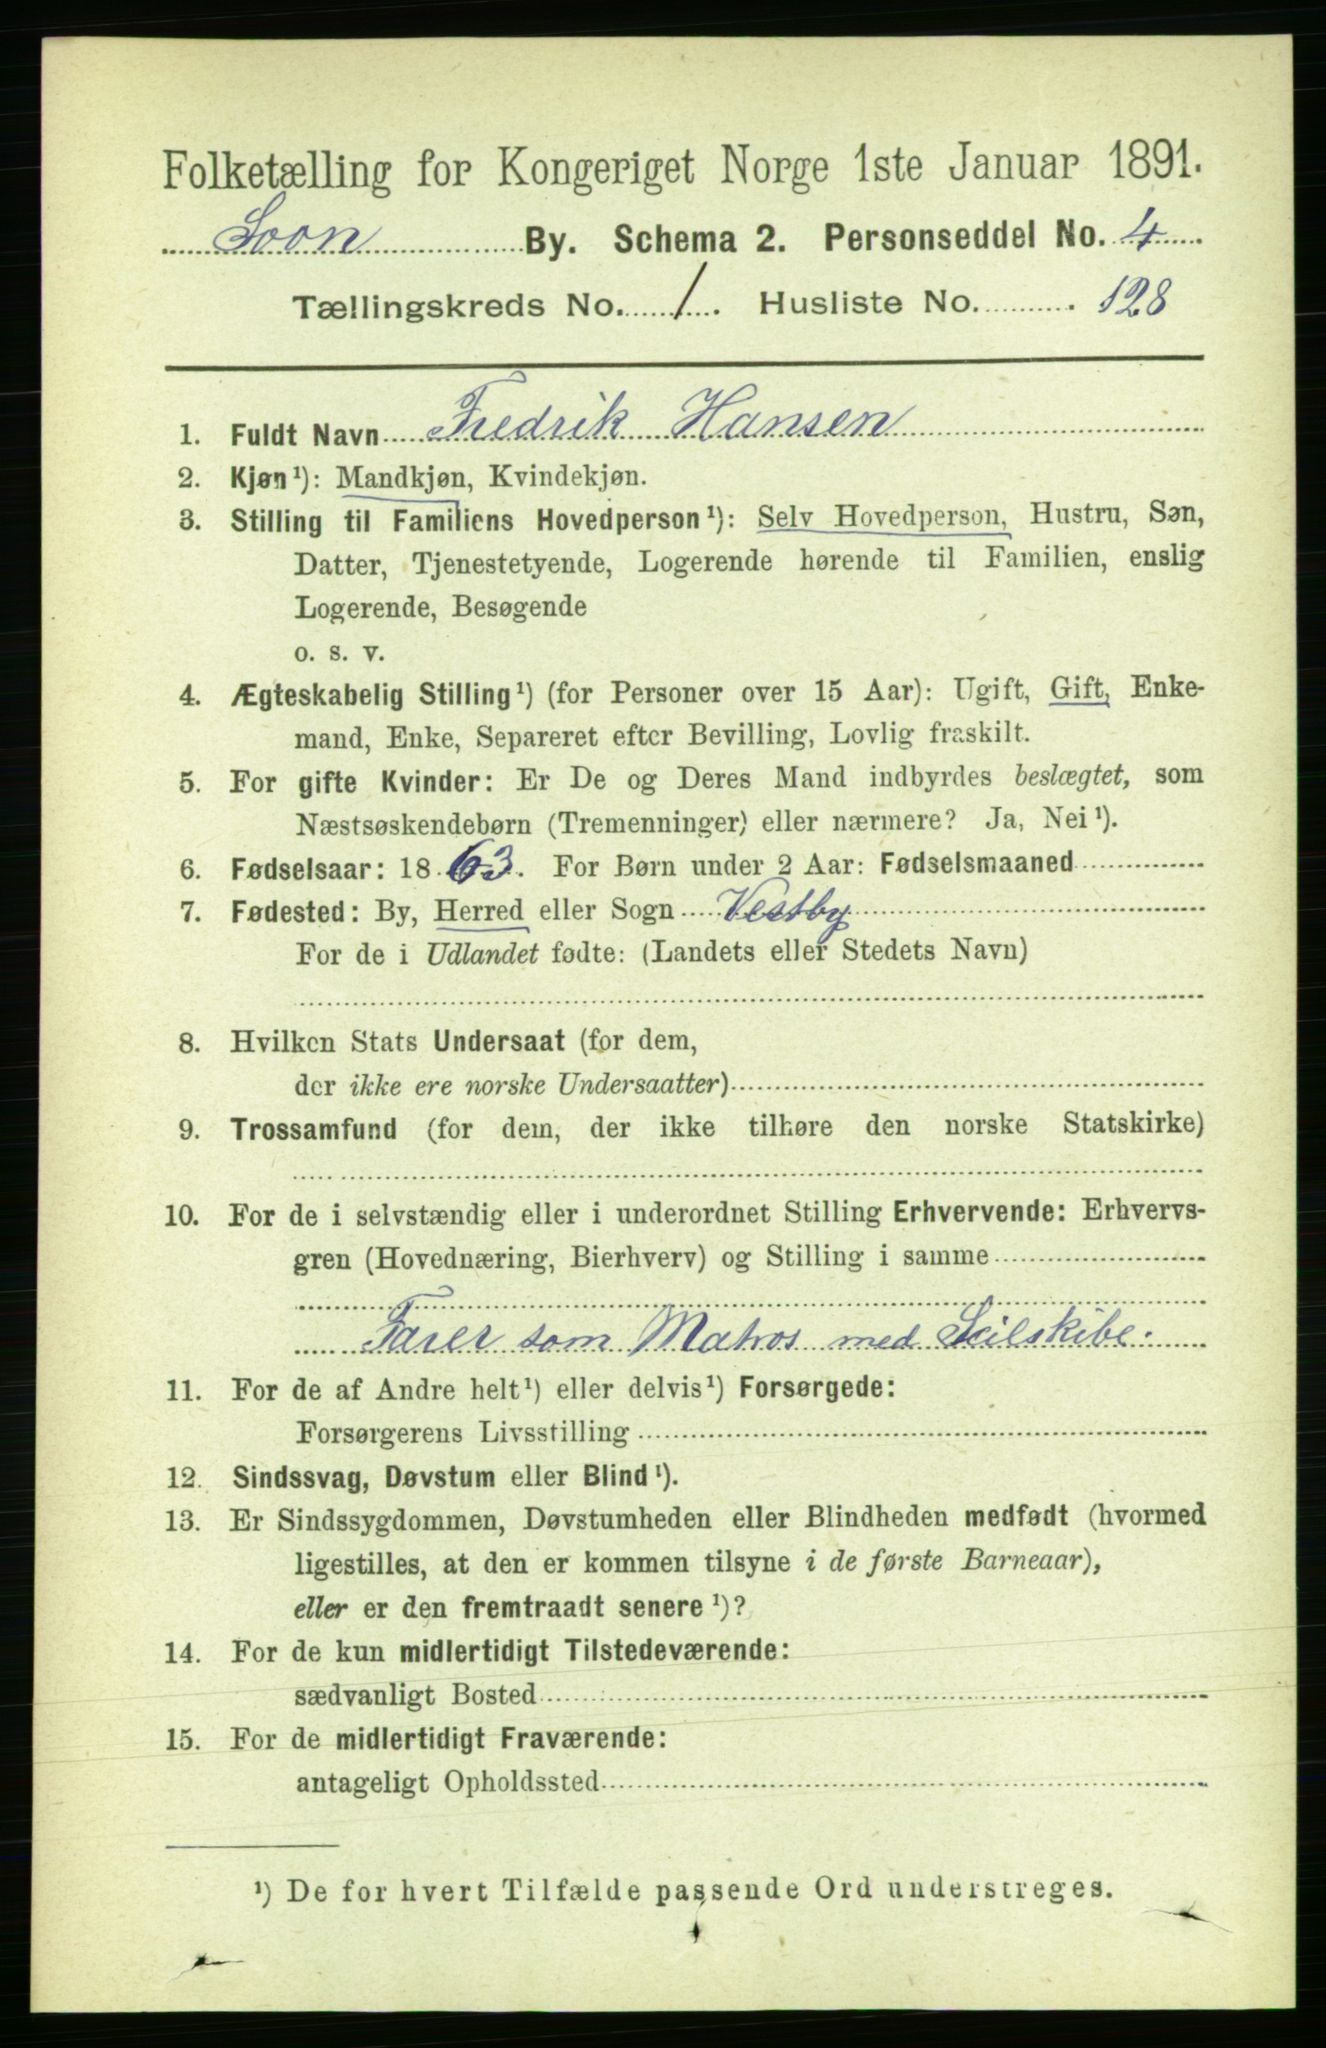 Folketælling for Kongeriget Norge 1ste Januar 1891.
Soon By. Schema 2. Personseddel No. 4
Tællingskreds No. 1. Husliste No. 128
1. Fuldt Navn Fredrik Hansen
2. Kjøn¹): Mandkjøn, Kvindekjøn.
3. Stilling til Familiens Hovedperson¹): Selv Hovedperson, Hustru, Søn,
Datter, Tjenestetyende, Logerende hørende til Familien, enslig
Logerende, Besøgende
o. s. v.
4. Ægteskabelig Stilling¹) (for Personer over 15 Aar): Ugift, Gift, Enke-
mand, Enke, Separeret efter Bevilling, Lovlig fraskilt.
5. For gifte Kvinder: Er De og Deres Mand indbyrdes beslægtet, som
Næstsøskendebørn (Tremenninger) eller nærmere? Ja, Nei¹).
6. Fødselsaar: 1863. For Børn under 2 Aar: Fødselsmaaned
7. Fødested: By, Herred eller Sogn Vestby
For de i Udlandet fødte: (Landets eller Stedets Navn)
8. Hvilken Stats Undersaat (for dem,
der ikke ere norske Undersaatter)
9. Trossamfund (for dem, der ikke tilhøre den norske Statskirke)
10. For de i selvstændig eller i underordnet Stilling Erhvervende: Erhvervs-
gren (Hovednæring, Bierhverv) og Stilling i samme
Farer som Matros med Seilskibe.
11. For de af Andre helt¹) eller delvis¹) Forsørgede:
Forsørgerens Livsstilling
12. Sindssvag, Døvstum eller Blind¹).
13. Er Sindssygdommen, Døvstumheden eller Blindheden medfødt (hvormed
ligestilles, at den er kommen tilsyne i de første Barneaar),
eller er den fremtraadt senere¹)?
14. For de kun midlertidigt Tilstedeværende:
sædvanligt Bosted
15. For de midlertidigt Fraværende:
antageligt Opholdssted
¹) De for hvert Tilfælde passende Ord understreges.